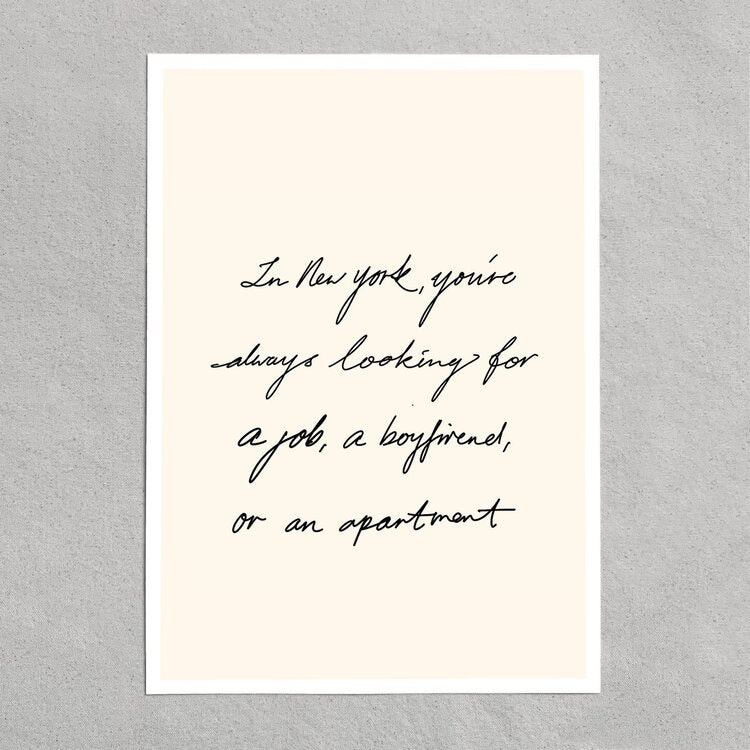 In New york, you're
always looking for
a job, a boyfirend,
or an apartment